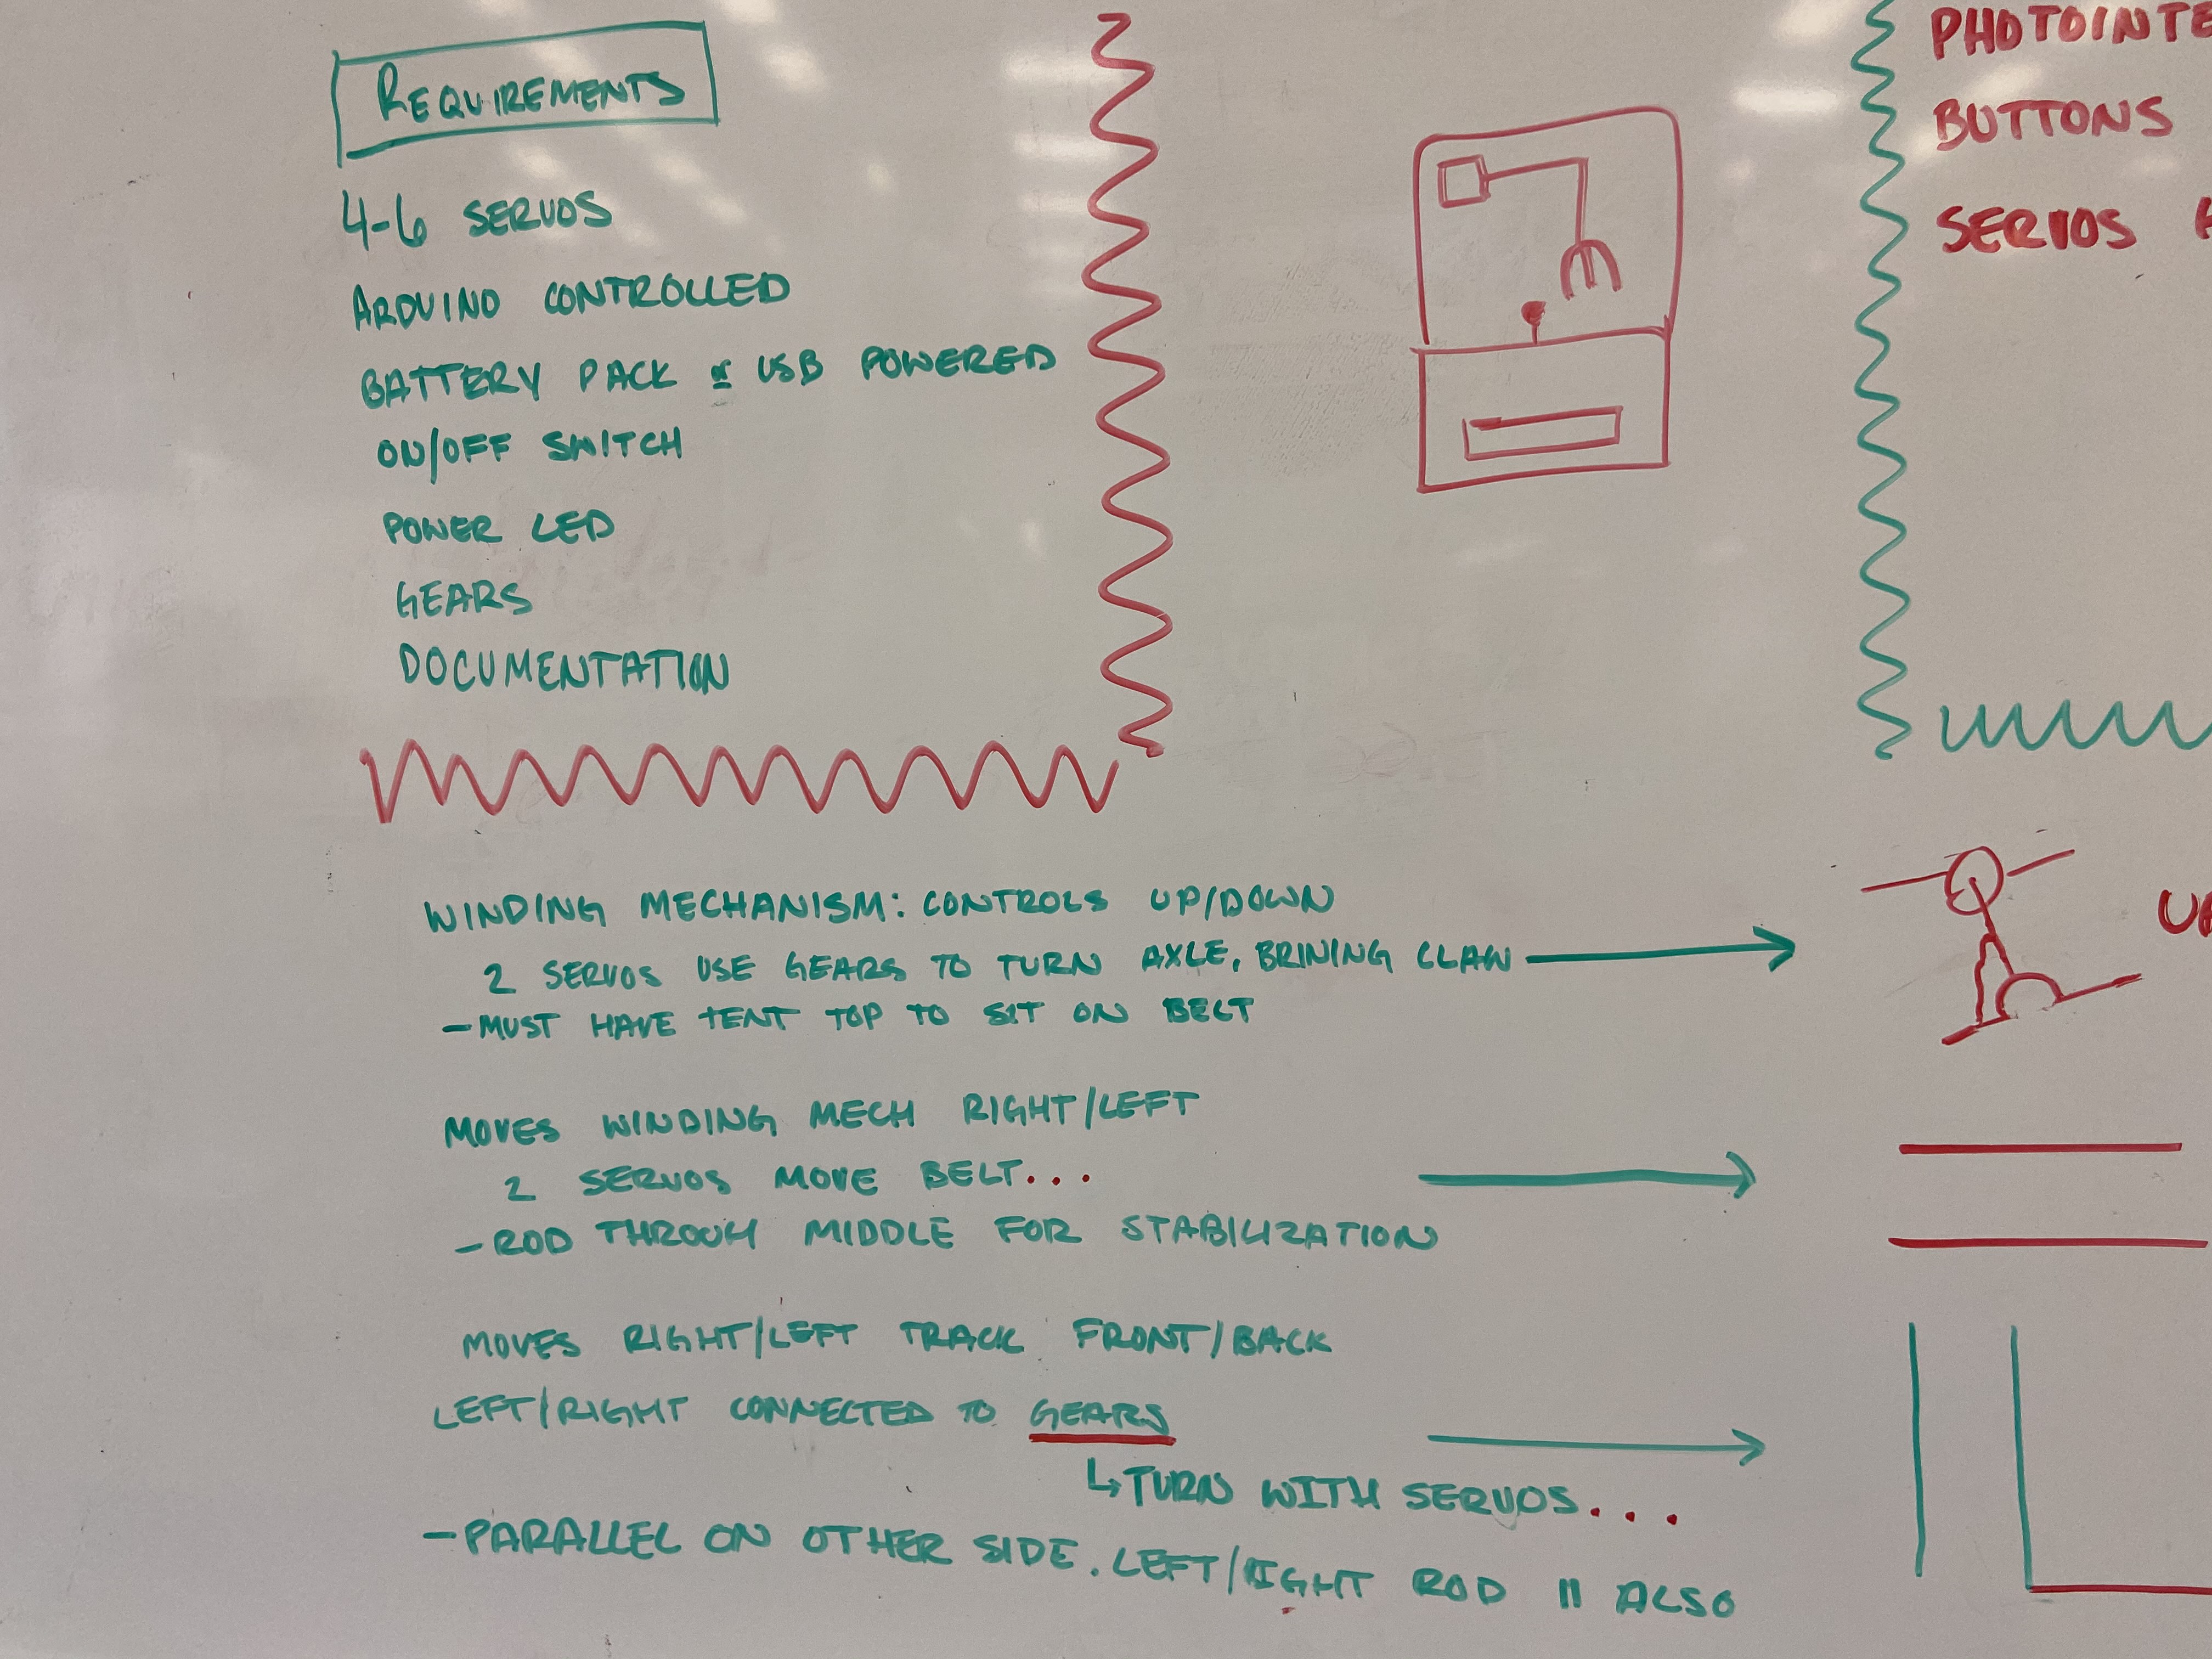 REQUIREMENTS
4-6 SERVOS
ARDUINO CONTROLLED
BATTERY PACK or USB POWERED
ON/OFF SWITCH
POWER LED
GEARS
DOCUMENTATION
PHOTOINTE
BUTTONS
SERVOS
WINDING MECHANISM: CONTROLS UP/DOWN
2 SERVOS USE GEARS TO TURN AXLE, BRINING CLAW
- MUST HAVE TENT TOP TO SIT ON BELT
MOVES WINDING MECH RIGHT/LEFT
2 SERVOS MOVE BELT...
- ROD THROUGH MIDDLE FOR STABILIZATION
MOVES RIGHT/LEFT TRACK FRONT/BACK
LEFT/RIGHT CONNECTED TO GEARS
↳ TURN WITH SERVOS....
- PARALLEL ON OTHER SIDE. LEFT/RIGHT ROD || ALSO